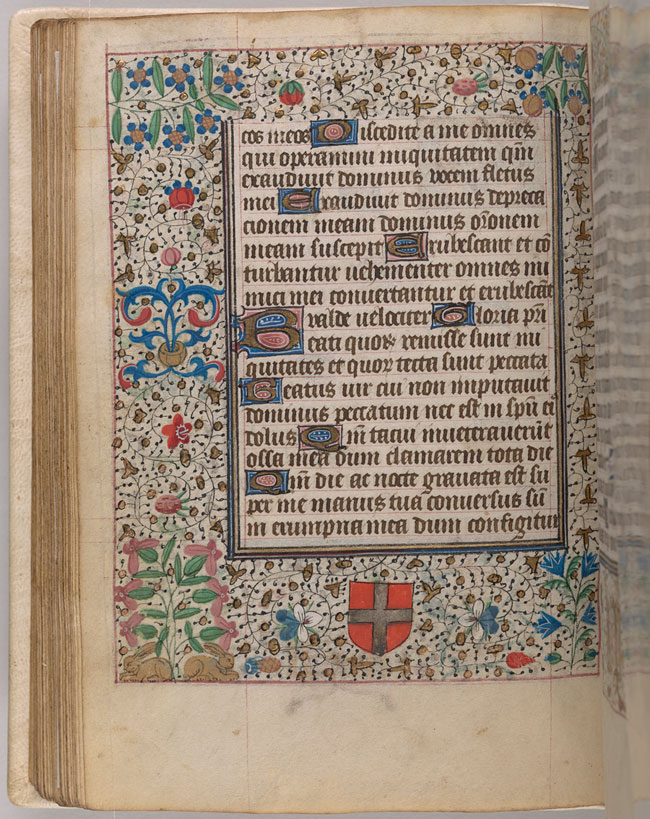 cos meos Discedite a me omnes
qui operamini iniquitatem qm̄
exaudiuit dominus vocem fletus
mei Exaudiuit dominus depreca
cionem meam dominus orōnem
meam suscepit Erubescant et cō
turbantur vehementer omnes ini
mici mei convertantur et erubescāt
valde velociter Gloria pr̄i
Beati quoꝝ remisse sunt ini
quitates et quoꝝ tecta sunt peccata
Beatus vir cui non imputauit
dominus peccatum nec est in spū ei
dolus Qm̄ tacui inueterauerūt
ossa mea dum clamarem tota die
Qm̄ die ac nocte grauata est su
per me manus tua conversus sū
in erumpna mea dum configitur